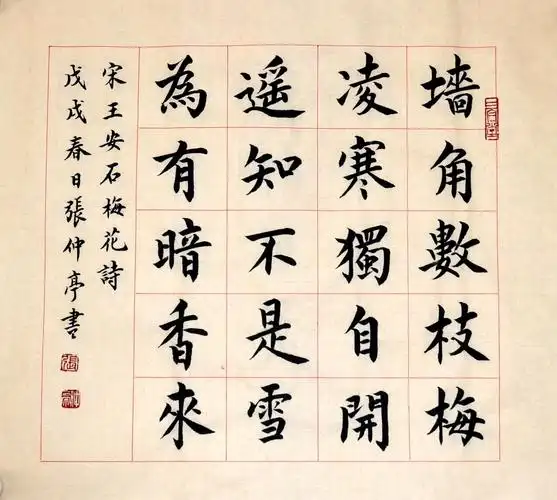 墻角數枝梅
凌寒獨自開
遥知不是雪
為有暗香來
宋王安石梅花詩
戊戌春日張仲亭書